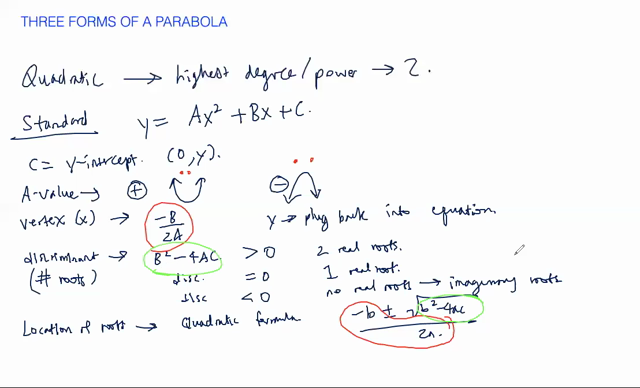 THREE FORMS OF A PARABOLA
Quadratic → highest degree/power → 2.
Standard y = Ax² + Bx + C.
C = y-intercept (0, y).
A-value → + −
vertex (x) → -B/2A y → plug back into equation.
discriminant → B² - 4AC > 0 2 real roots.
(# roots) disc. = 0 1 real root.
disc < 0 no real roots → imaginary roots
Location of roots → Quadratic formula -b ± √b² - 4ac / 2a.